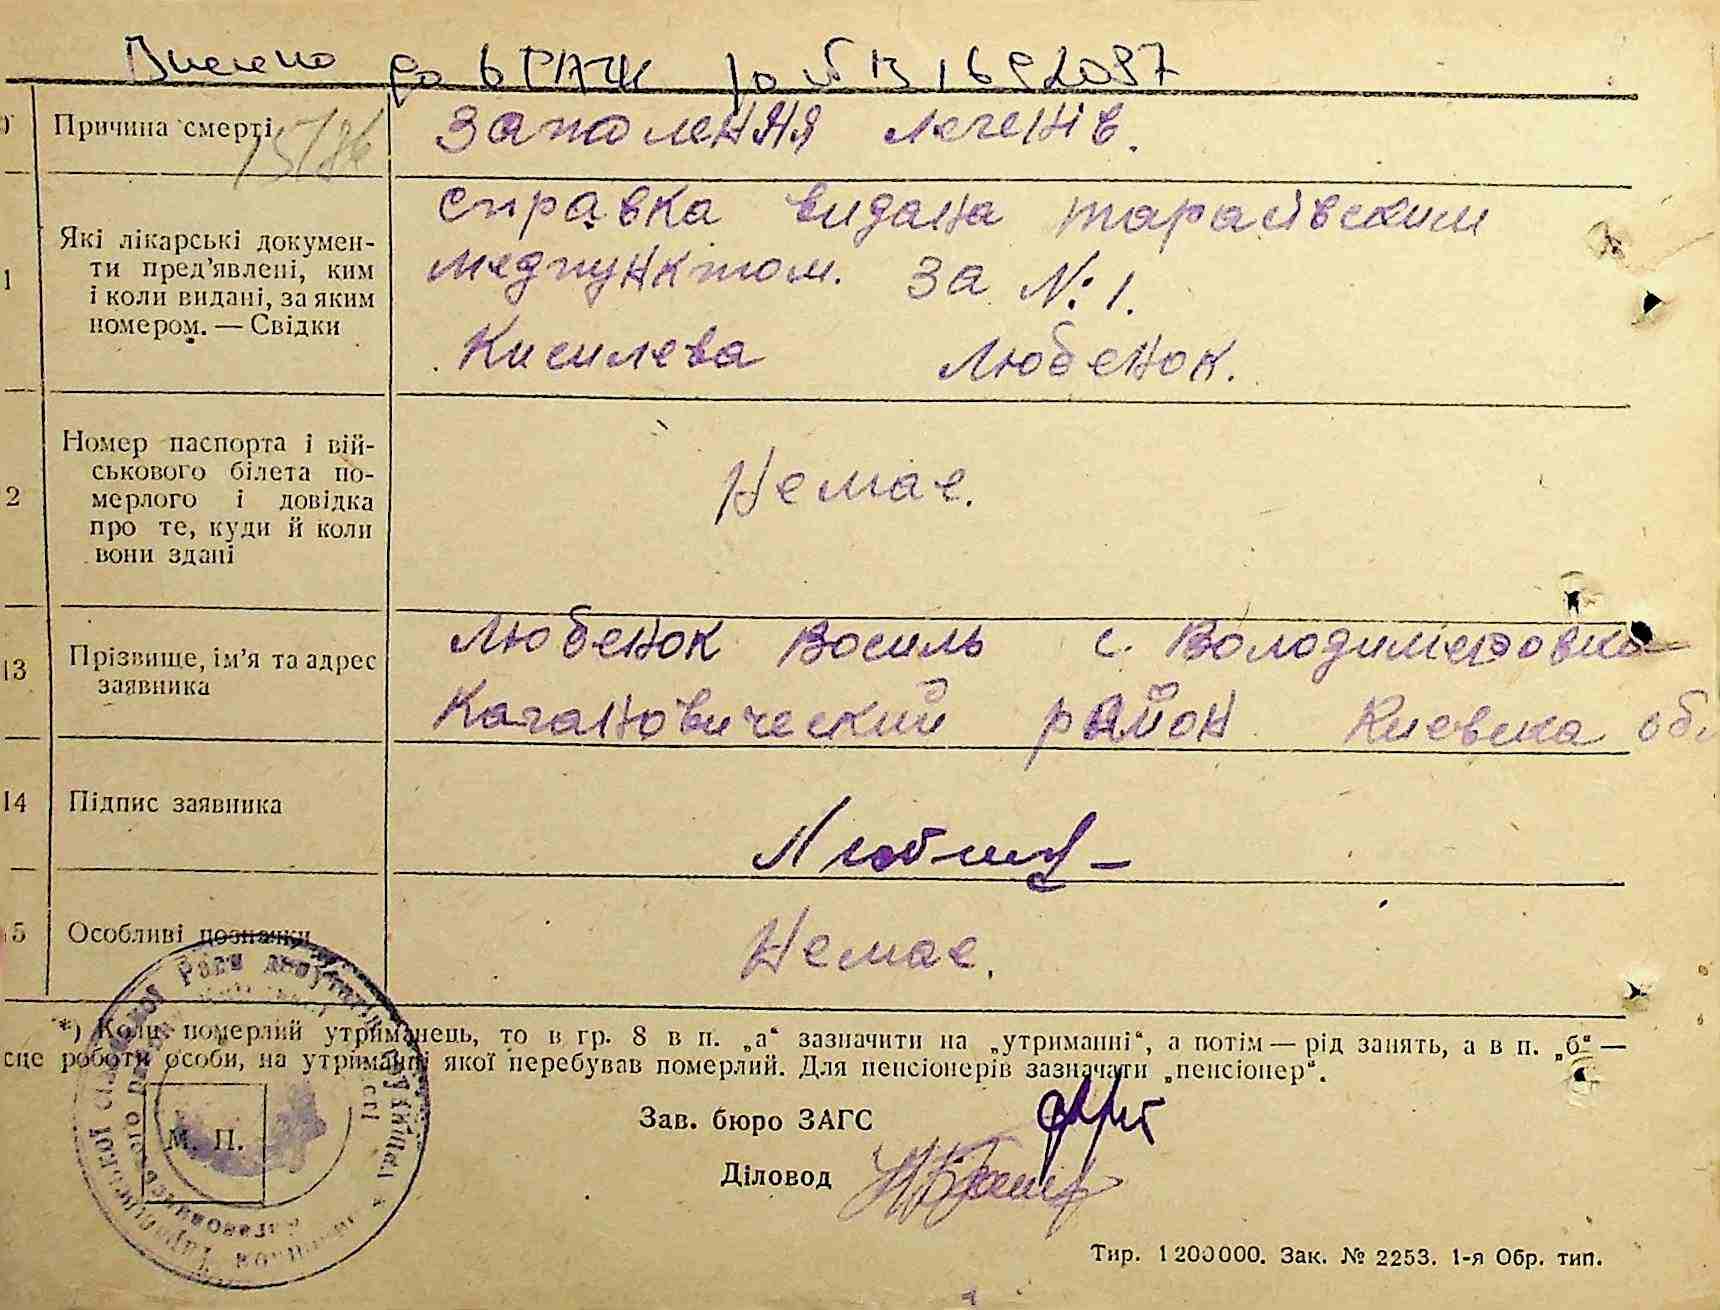 Внесено до ДРАЦС
Причина смерті
15/86
Заполення легенів.
1
Які лікарські документи пред'явлені, ким і коли видані, за яким номером. — Свідки
справка видана тарасівским
медпунктом. за №: 1.
Кисилева Любенок.
2
Номер паспорта і військового білета померлого і довідка про те, куди й коли вони здані
Немає.
13
Прізвище, ім'я та адрес заявника
Любенок Восиль с. Володимеровка
Кагановический район Киевска обл
14
Підпис заявника
5
Особливі позначки
Немає.
*) Коли померлий утриманець, то в гр. 8 в п. „а“ зазначити на „утриманні“, а потім — рід занять, а в п. „б“ —
сце роботи особи, на утриманні якої перебував померлий. Для пенсіонерів зазначати „пенсіонер“.
Зав. бюро ЗАГС
М. П.
Діловод
Тир. 1200000. Зак. № 2253. 1-я Обр. тип.